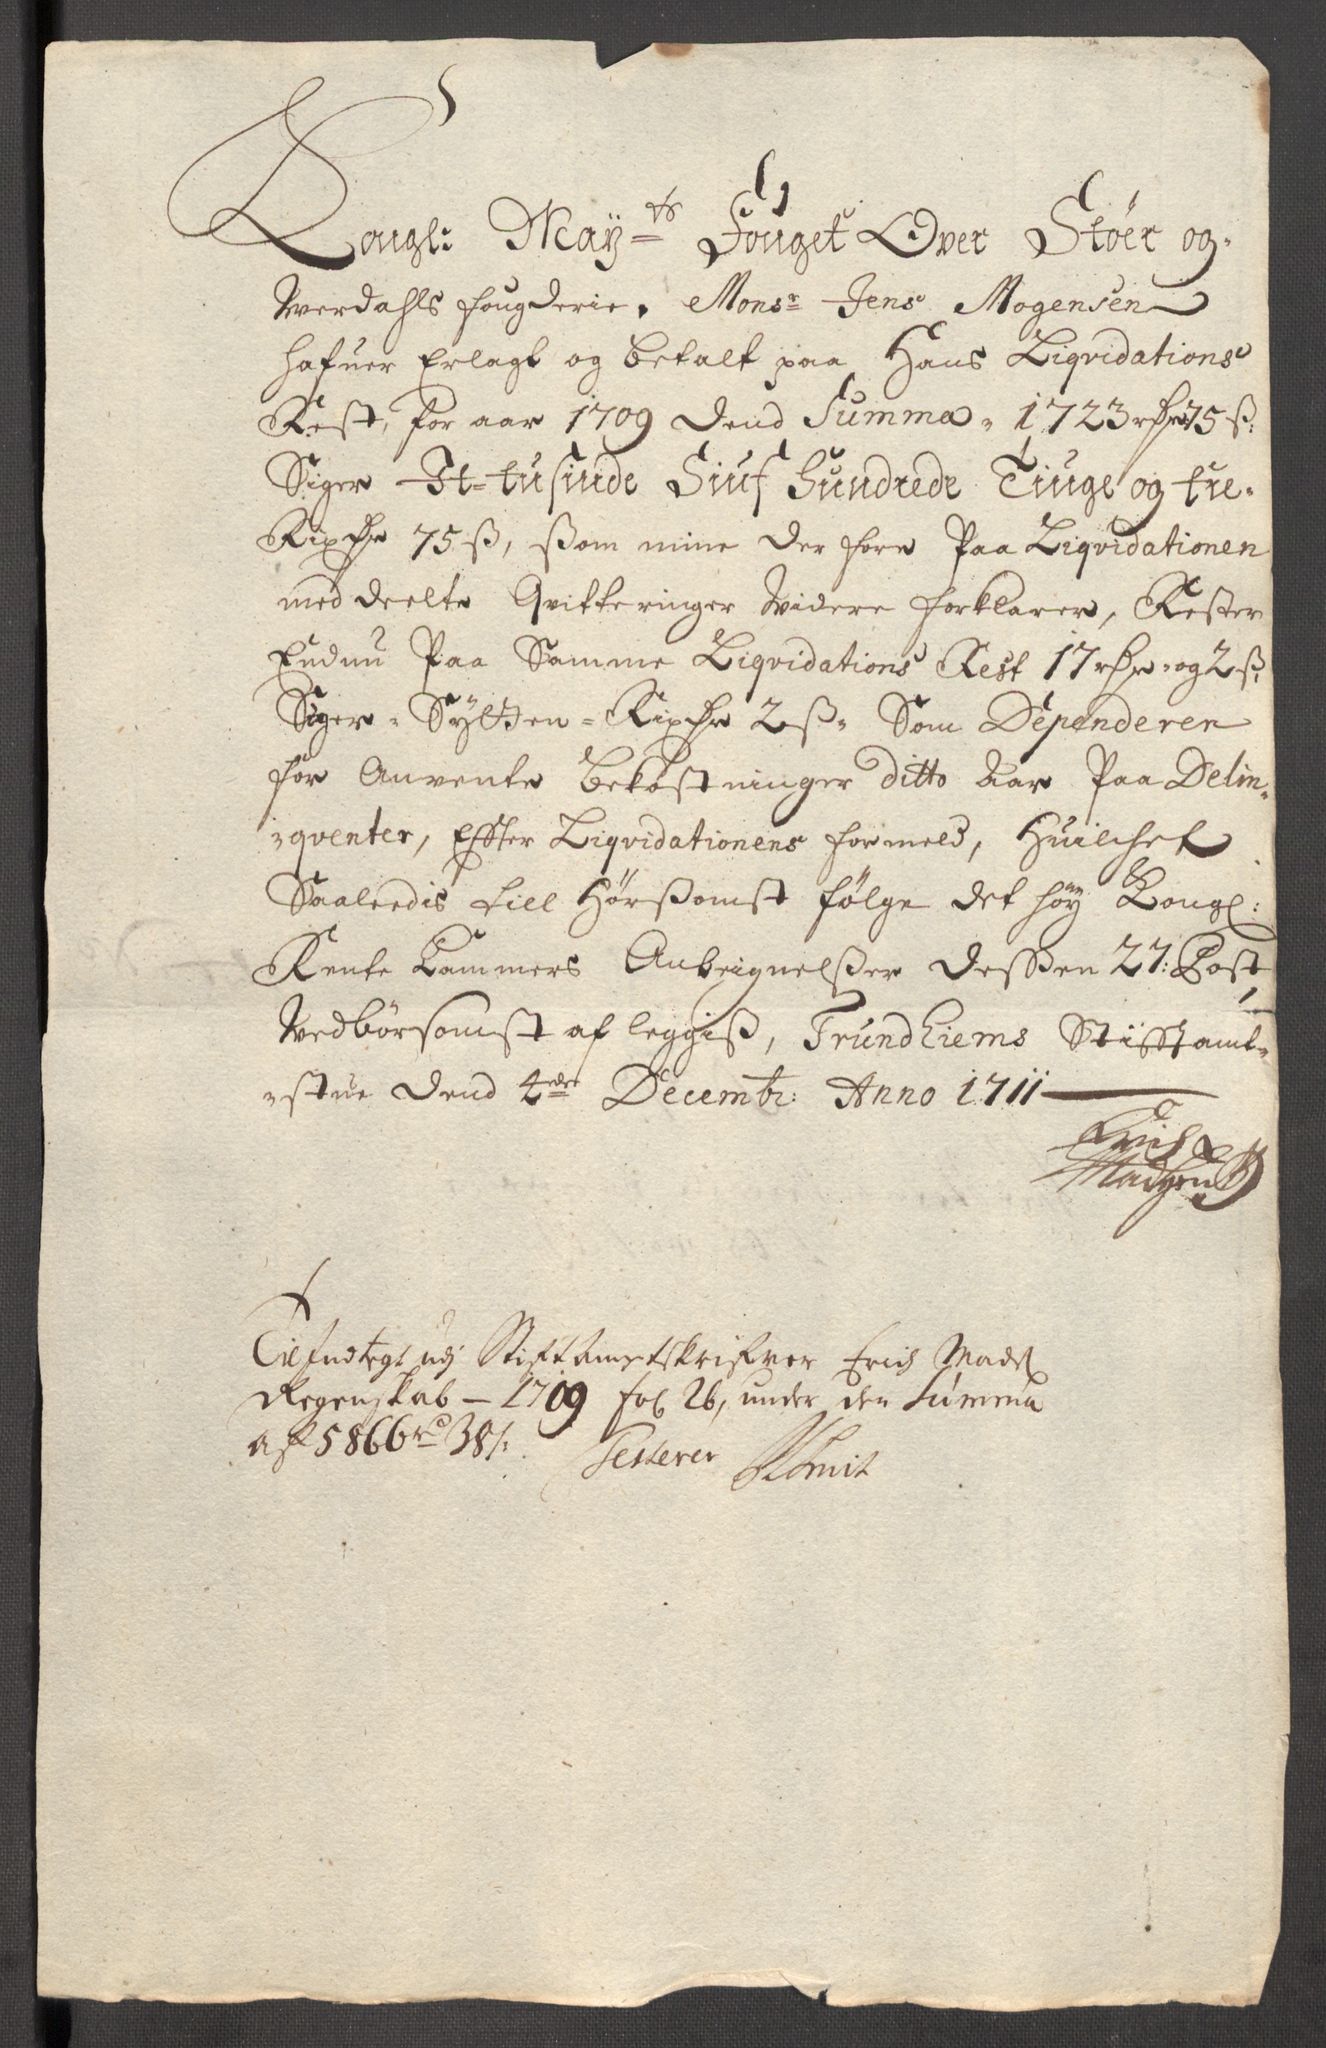 Kongl: May:ts Fouget Over Støer og
Werdahls fougderie, Monsr Jens Mogensen
hafuer Erlagt og betalt paa Hans Liqvidations
Rest, for aar 1709 Dend Summa, 1723 rdr 75 ß:
Siger It-tusinde Siuf hundrede Tiuge og tre
Rixdr 75 ß, ßom mine der fore Paa Liqvidationen
med deelte Qvitteringer Videre forklarer, Rester
Endnu Paa Samme Liqvidations Rest 17 rdr: og 2 ß,
Siger Sytten Rixdr 2 ß, Som Dependerer
for Anvente bekostninger ditto Aar Paa Delin-
qventer, Effter Liqvidationens formeld, Huilchet
Saaleedis till Hørsomst følge det høy Kongl:
Rente Cammers Anteignelßer Deßßen 27: Post,
Vedbørsomst af leggis, Trundhiems Stifftamt-
stue Dend 4de Decembr: Anno 1711
Erich
Madsen
Tilfindtegt udj Stiftamtskrifver Erich Madß
Regenskab - 1709 fol 26, under den Summa
af 5866 rd 38 ß:
Testerer
Smit